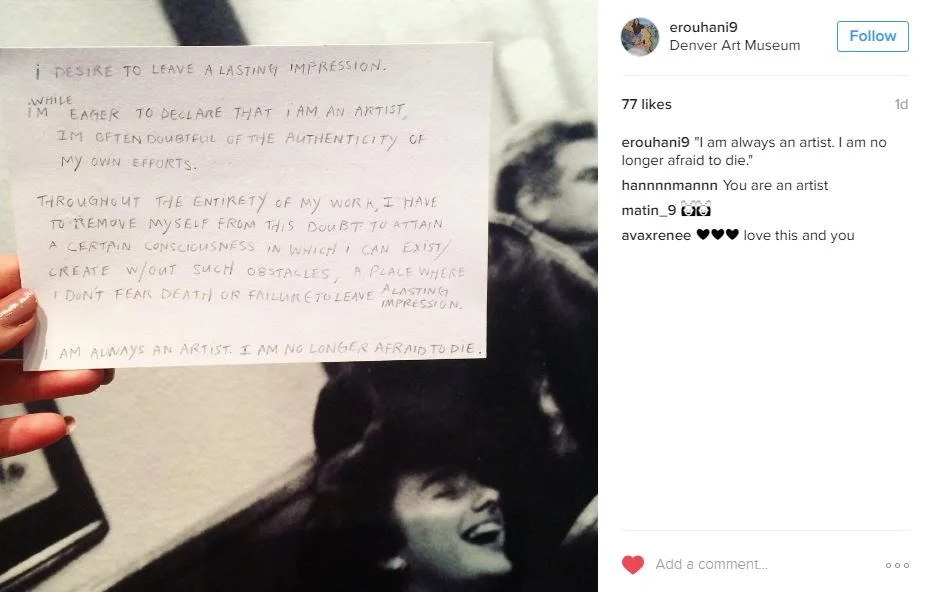 i DESIRE TO LEAVE A LASTING IMPRESSION.
WHILE
I'M EAGER TO DECLARE THAT I AM AN ARTIST,
IM OFTEN DOUBTFUL OF THE AUTHENTICITY OF
MY OWN EFFORTS.
THROUGHOUT THE ENTIRETY OF MY WORK, I HAVE
TO REMOVE MYSELF FROM THIS DOUBT TO ATTAIN
A CERTAIN CONSCIOUSNESS IN WHICH I CAN EXIST/
CREATE W/OUT SUCH OBSTACLES, A PLACE WHERE
I DON'T FEAR DEATH OR FAILURE TO LEAVE A LASTING
IMPRESSION.
I AM ALWAYS AN ARTIST. I AM NO LONGER AFRAID TO DIE.
erouhani9
Denver Art Museum
Follow
77 likes
1d
erouhani9 "I am always an artist. I am no
longer afraid to die."
hannnnmannn You are an artist
matin_9 🙌🙌
avaxrenee ♥♥♥ love this and you
Add a comment...